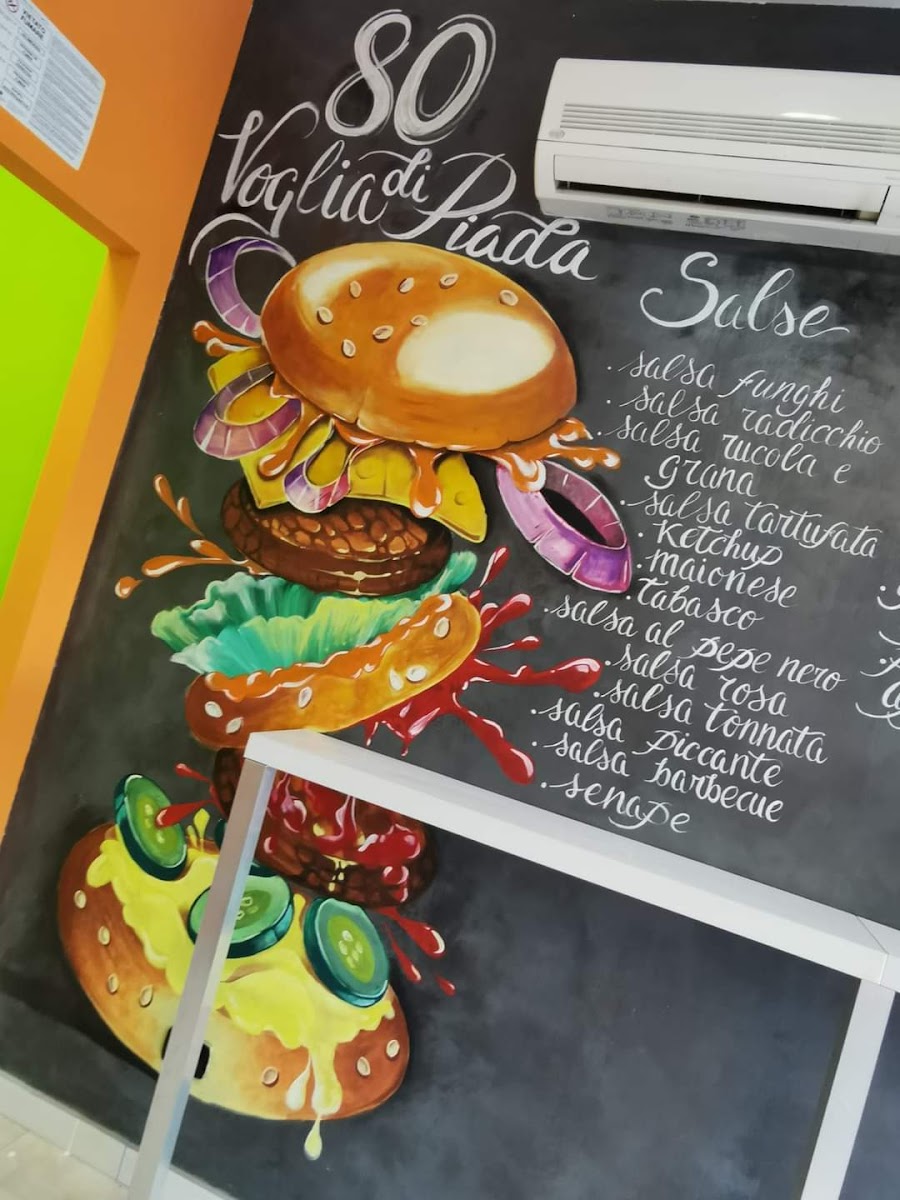 VIETATO
FUMARE
80
Voglia di Piada
Salse
. salsa funghi
. salsa radicchio
. salsa rucola e
grana
. salsa tartufata
. Ketchup
. maionese
. tabasco
. salsa al pepe nero
. salsa rosa
. salsa tonnata
. salsa piccante
. salsa barbecue
. senape